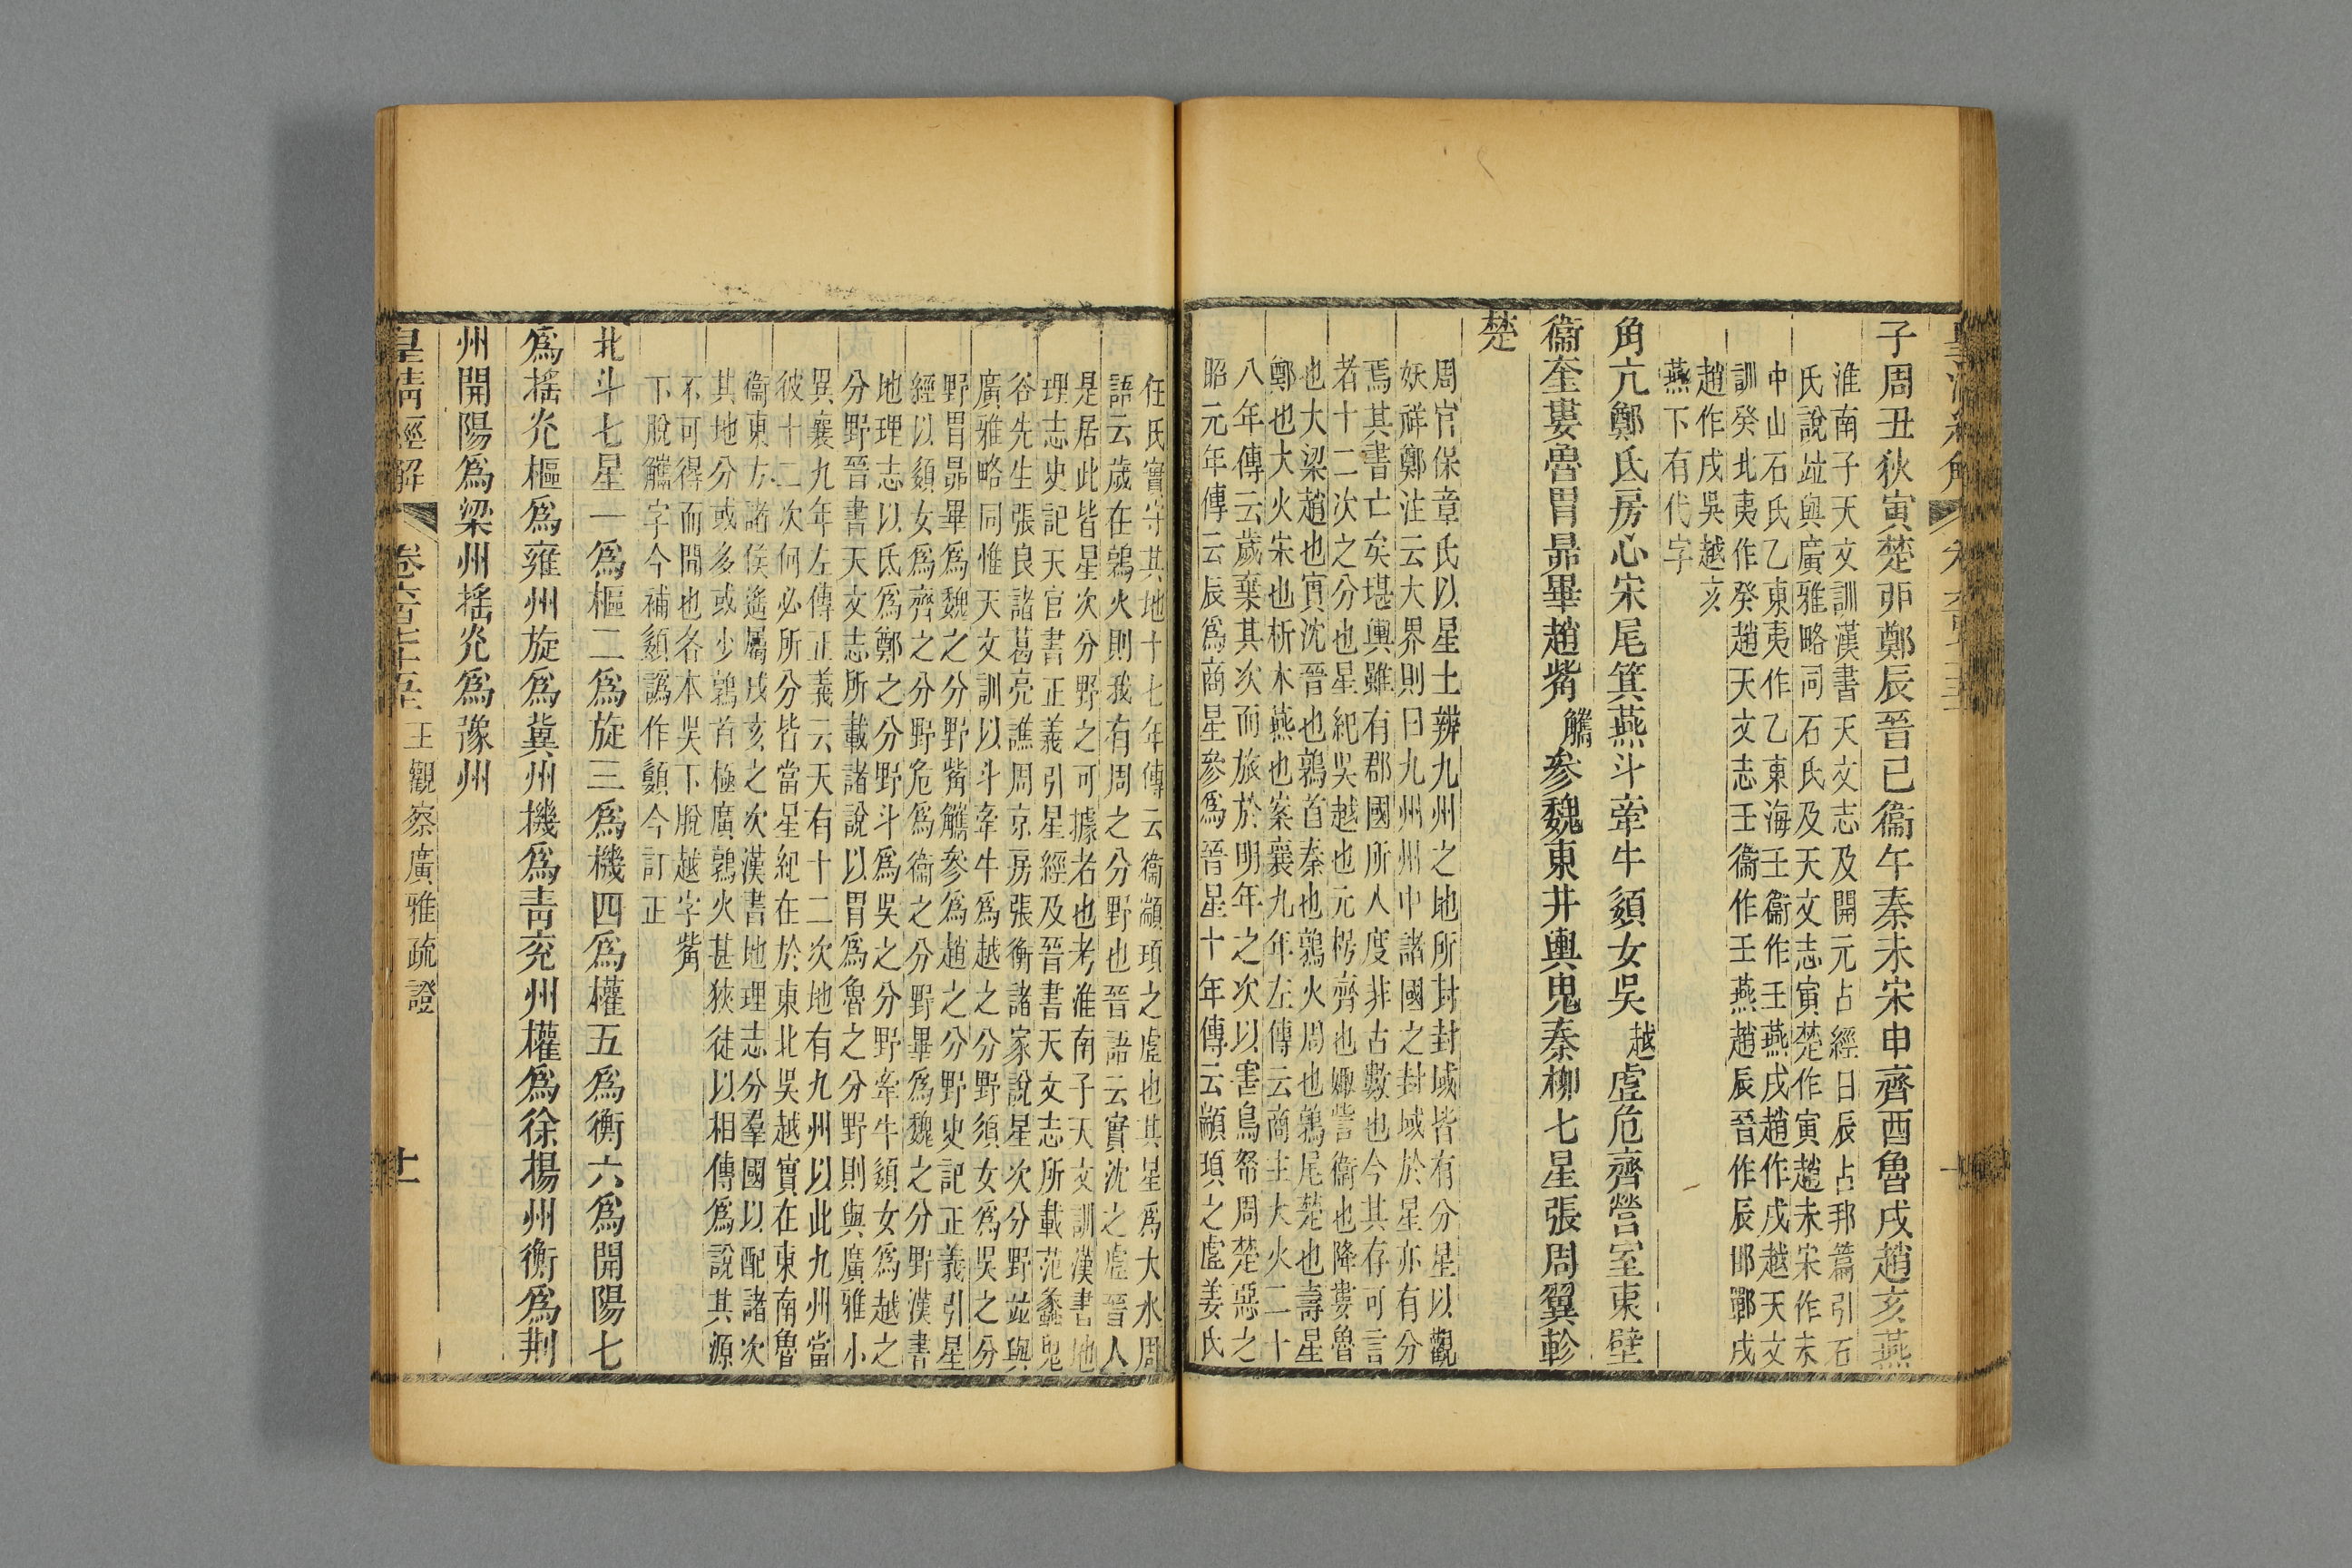 子周丑狄寅楚卯鄭辰晉巳衞午秦未宋申齊酉魯戌趙亥燕
淮南子天文訓漢書天文志及開元占經日辰占邦篇引石
氏說竝與廣雅略同石氏及天文志寅楚作寅趙未宋作未
中山石氏乙東夷作乙東海壬衞作王燕戌趙作戌越天文
訓癸北夷作癸趙天文志壬衞作壬燕趙辰晉作辰邯鄲戌
趙作戌吳越亥
燕下有代字
角亢鄭氐房心宋尾箕燕斗牽牛須女吳越虛危齊營室東壁
衞奎婁魯胃昴畢趙觜觿參魏東井輿鬼秦柳七星張周翼軫
楚
周官保章氏以星土辨九州之地所封封域皆有分星以觀
妖祥鄭注云大界則曰九州州中諸國之封域於星亦有分
焉其書亡矣堪輿雖有郡國所入度非古數也今其存可言
者十二次之分也星紀吳越也元枵齊也娵訾衞也降婁魯
也大梁趙也實沈晉也鶉首秦也鶉火周也鶉尾楚也壽星
鄭也大火宋也析木燕也案襄九年左傳云商主大火二十
八年傳云歲棄其次而旅於明年之次以害鳥帑周楚惡之
昭元年傳云辰爲商星參爲晉星十年傳云顓頊之虛姜氏
任氏實守其地十七年傳云衞顓頊之虛也其星爲大水周
語云歲在鶉火則我有周之分野也晉語云實沈之虛晉人
是居此皆星次分野之可據者也考淮南子天文訓漢書地
理志史記天官書正義引星經及晉書天文志所載范蠡鬼
谷先生張良諸葛亮譙周京房張衡諸家說星次分野竝與
廣雅略同惟天文訓以斗牽牛爲越之分野須女爲吳之分
野胃昴畢爲魏之分野觜觿參爲趙之分野史記正義引星
經以須女爲齊之分野危爲衞之分野畢爲魏之分野漢書
地理志以氐爲鄭之分野斗爲吳之分野牽牛須女爲越之
分野晉書天文志所載諸說以胃爲魯之分野則與廣雅小
異襄九年左傳正義云天有十二次地有九州以此九州當
彼十二次何必所分皆當星紀在於東北吳越實在東南魯
衞東方諸侯遙屬戌亥之次漢書地理志分羣國以配諸次
其地分或多或少鶉首極廣鶉火甚狹徒以相傳爲說其源
不可得而聞也各本吳下脫越字觜
下脫觿字今補須譌作顉今訂正
北斗七星一爲樞二爲旋三爲機四爲權五爲衡六爲開陽七
爲搖光樞爲雍州旋爲冀州機爲靑兗州權爲徐揚州衡爲荆
州開陽爲梁州搖光爲豫州
皇清經解 卷六百七十五 王觀察廣雅疏證 十一